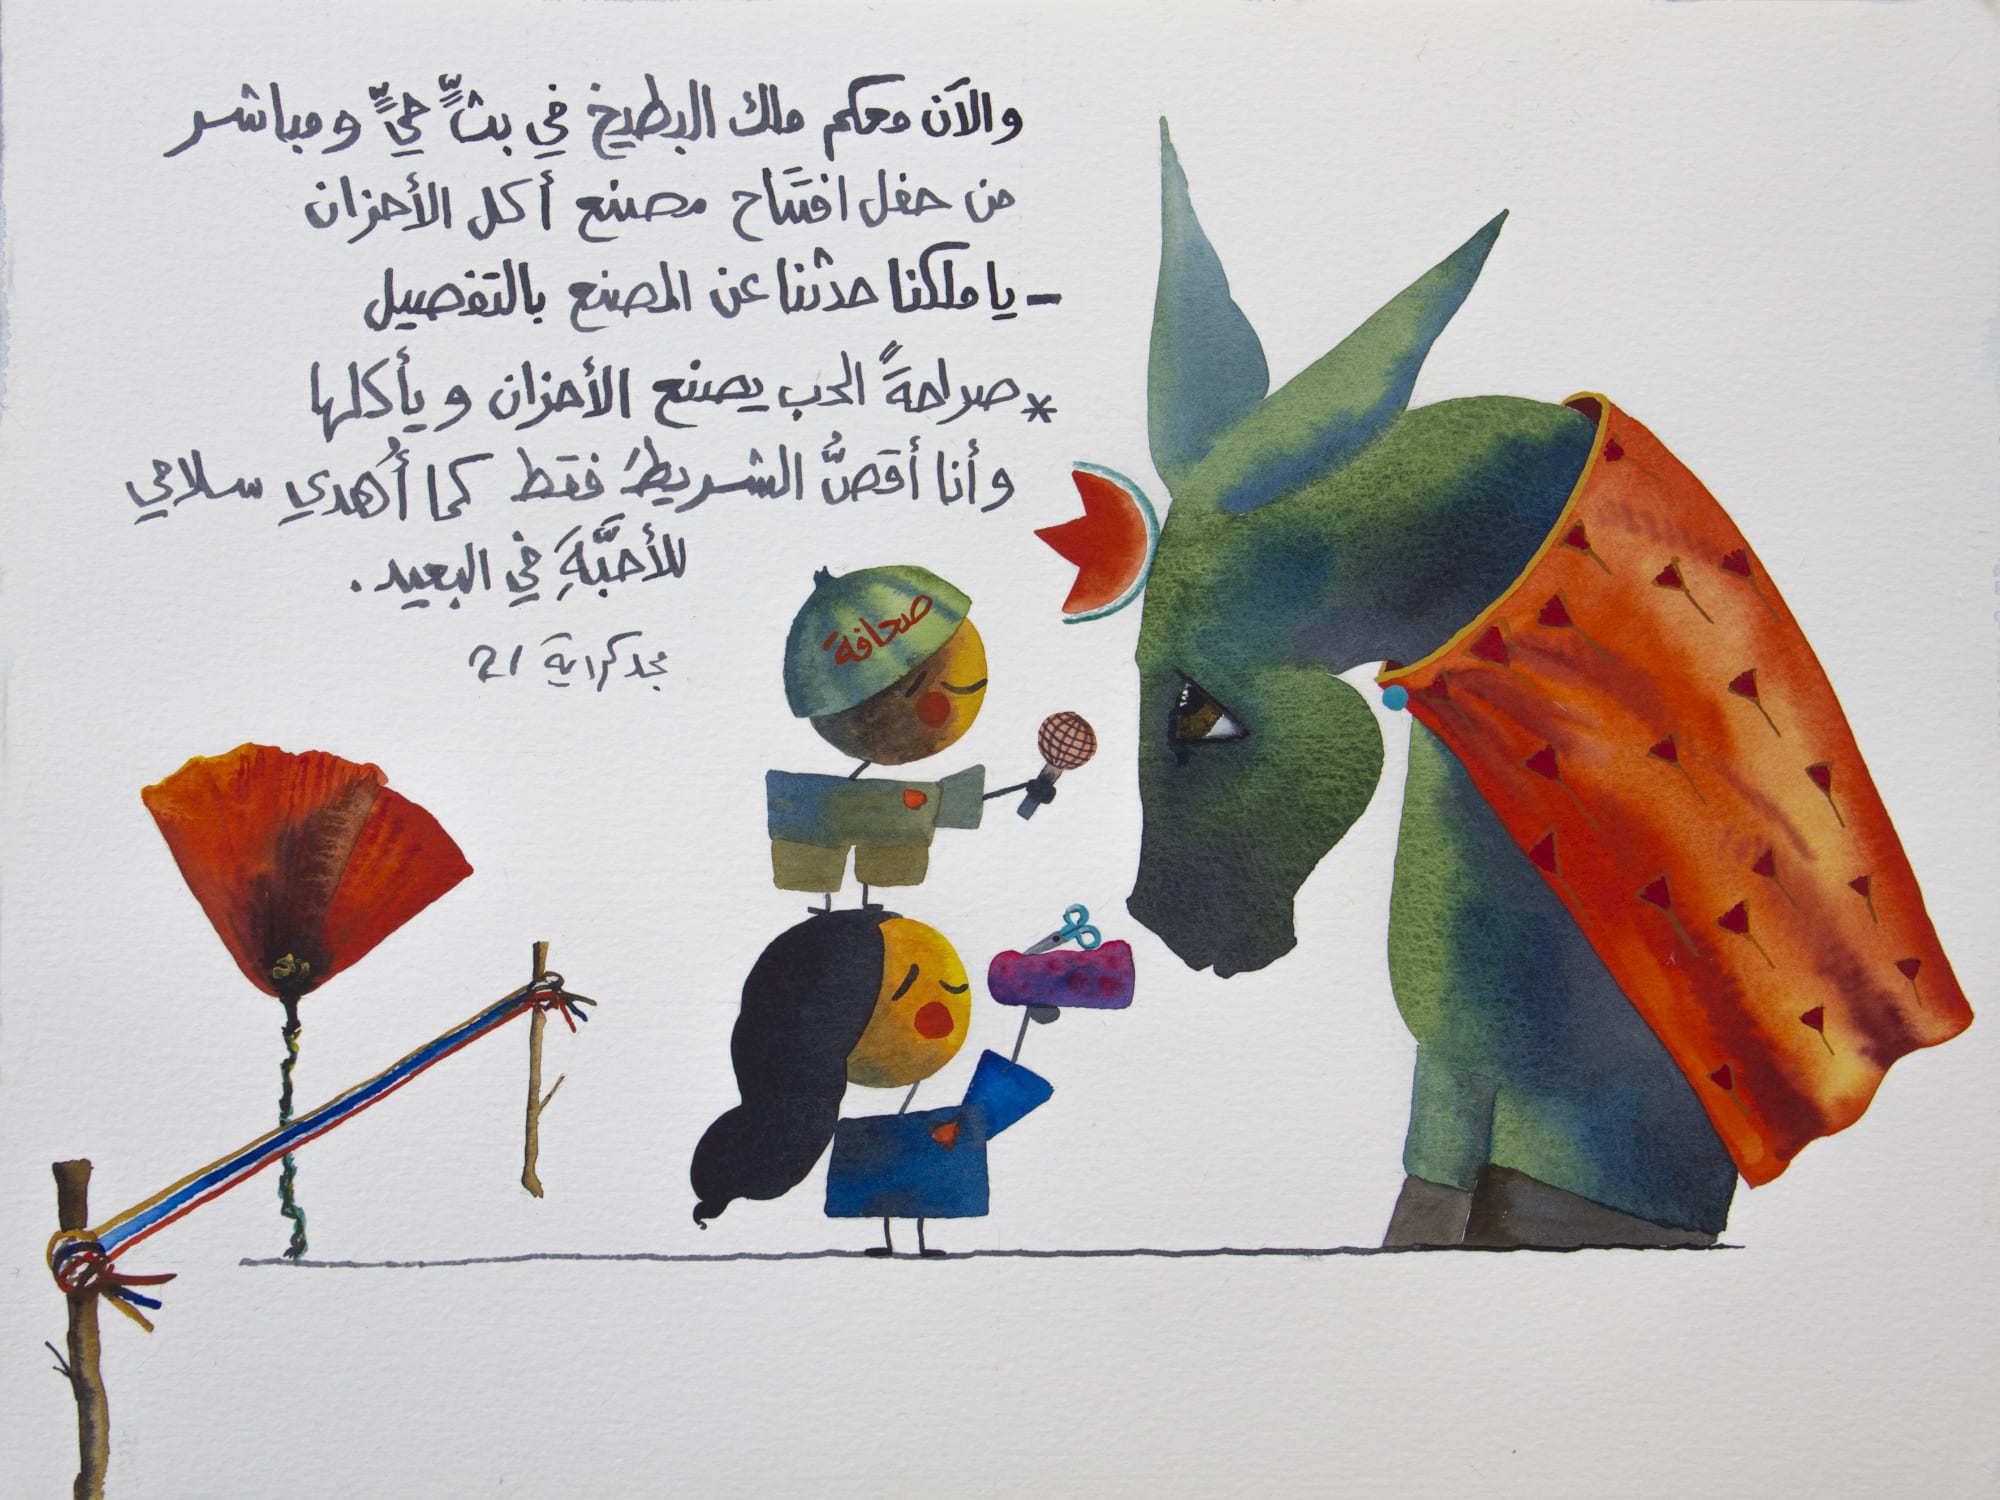 والآن معكم ملك البطيخ في بثٍّ حيٍّ ومباشر
من حفل افتتاح مصنع أكل الأحزان
- يا ملكنا حدثنا عن المصنع بالتفصيل
* صراحةً الحب يصنع الأحزان ويأكلها
وأنا أقصُّ الشريطَ فقط كما أُهدي سلامي
للأحبَّةِ في البعيد.
مجد كردية 21
صحافة